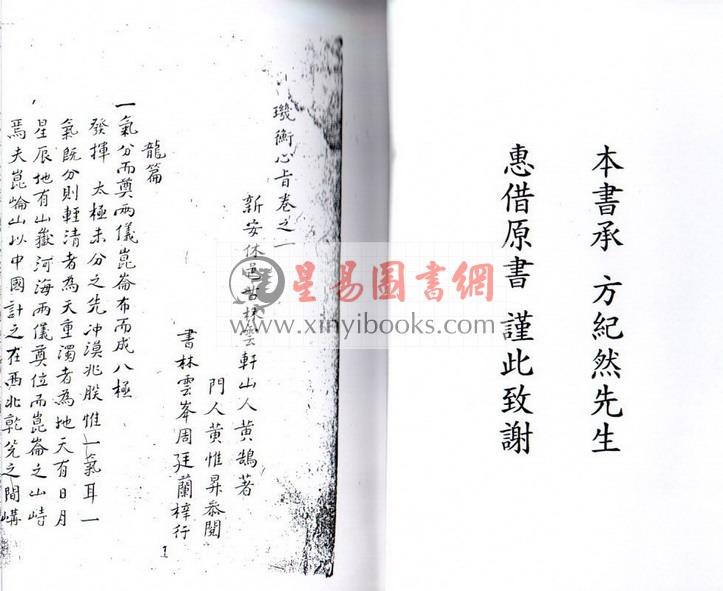 本書承 方紀然先生
惠借原書 謹此致謝
璣衡心旨卷之一
新安休邑古林雲軒山人黃鵠著
門人黃惟昇叅閱
書林雲峯周廷蘭梓行
龍篇
一氣分而奠兩儀崑崙布而成八極
發揮 太極未分之先冲漠兆朕惟一氣耳一
氣既分則輕清者為天重濁者為地天有日月
星辰地有山嶽河海兩儀奠位而崑崙之山峙
焉夫崑崙山以中國計之在西北乾 之間
1
星易圖書網
www.xinyibooks.com